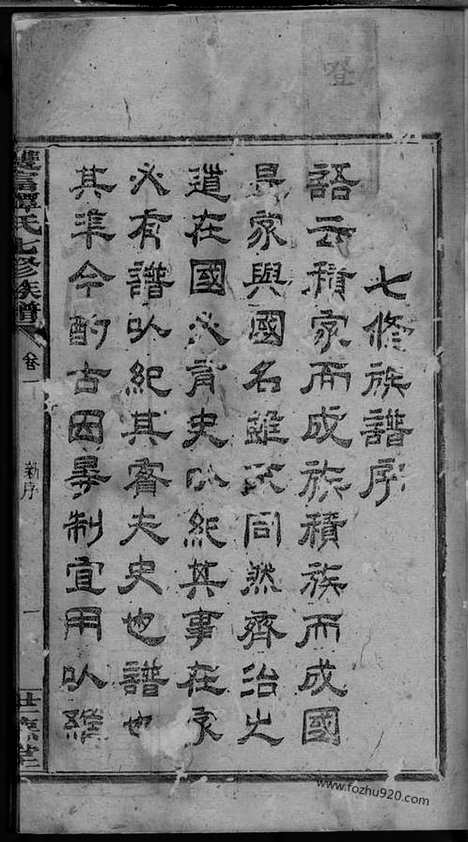 七修族譜序
語云積家而成族積族而成國
是家與國名雖不同然齊治之
道在國必有史以紀其事在家
必有譜以紀其實夫史也譜也
其準今酌古因畧制宜用以維
氏七修族譜
卷一
新序
一
www.fozhu920.com